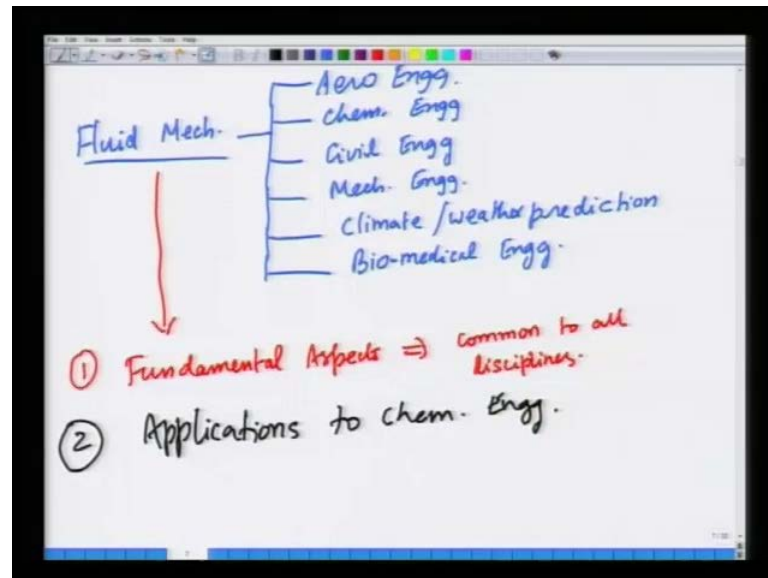 Aero Engg.
Chem. Engg
Fluid Mech.
Civil Engg
Mech. Engg.
Climate / weather prediction
Bio-medical Engg.
① Fundamental Aspects ⇒ common to all
disciplines.
② Applications to Chem. Engg.